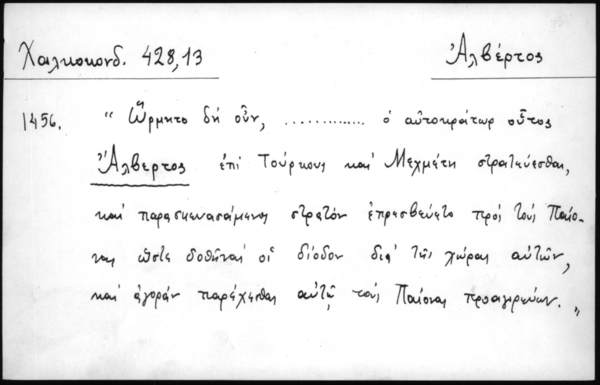 Χαλκοκονδ. 428,13
Ἀλβέρτος
1456. "Ὥρμητο δὴ οὖν, ............. ὁ αὐτοκράτωρ οὗτος
Ἀλβερτος ἐπὶ Τούρκους καὶ Μεχμέτη στρατεύεσθαι,
καὶ παρασκευασάμενος στρατὸν ἐπρεσβεύετο πρὸς τοὺς Παίο-
νας ὥστε δοθῆναί οἱ δίοδον διὰ τῆς χώρας αὐτῶν,
καὶ ἀγορὰν παρέχεσθαι αὐτῷ τοὺς Παίονας προαγορεύων."